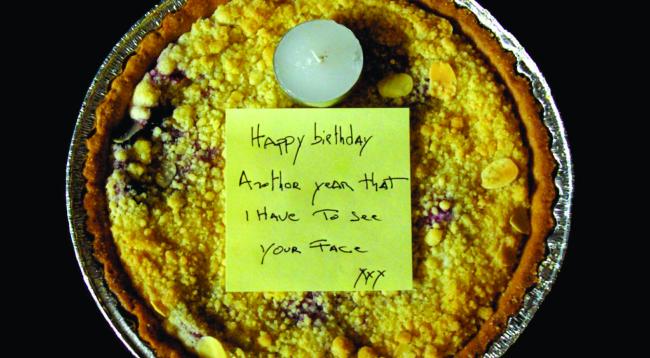 Happy birthday
Another year that
I HAVE TO see
YOUR FACE
xxx